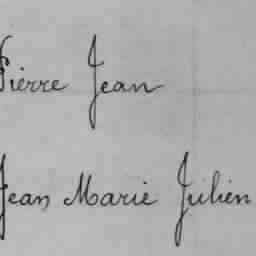 Pierre Jean
Jean Marie Julien